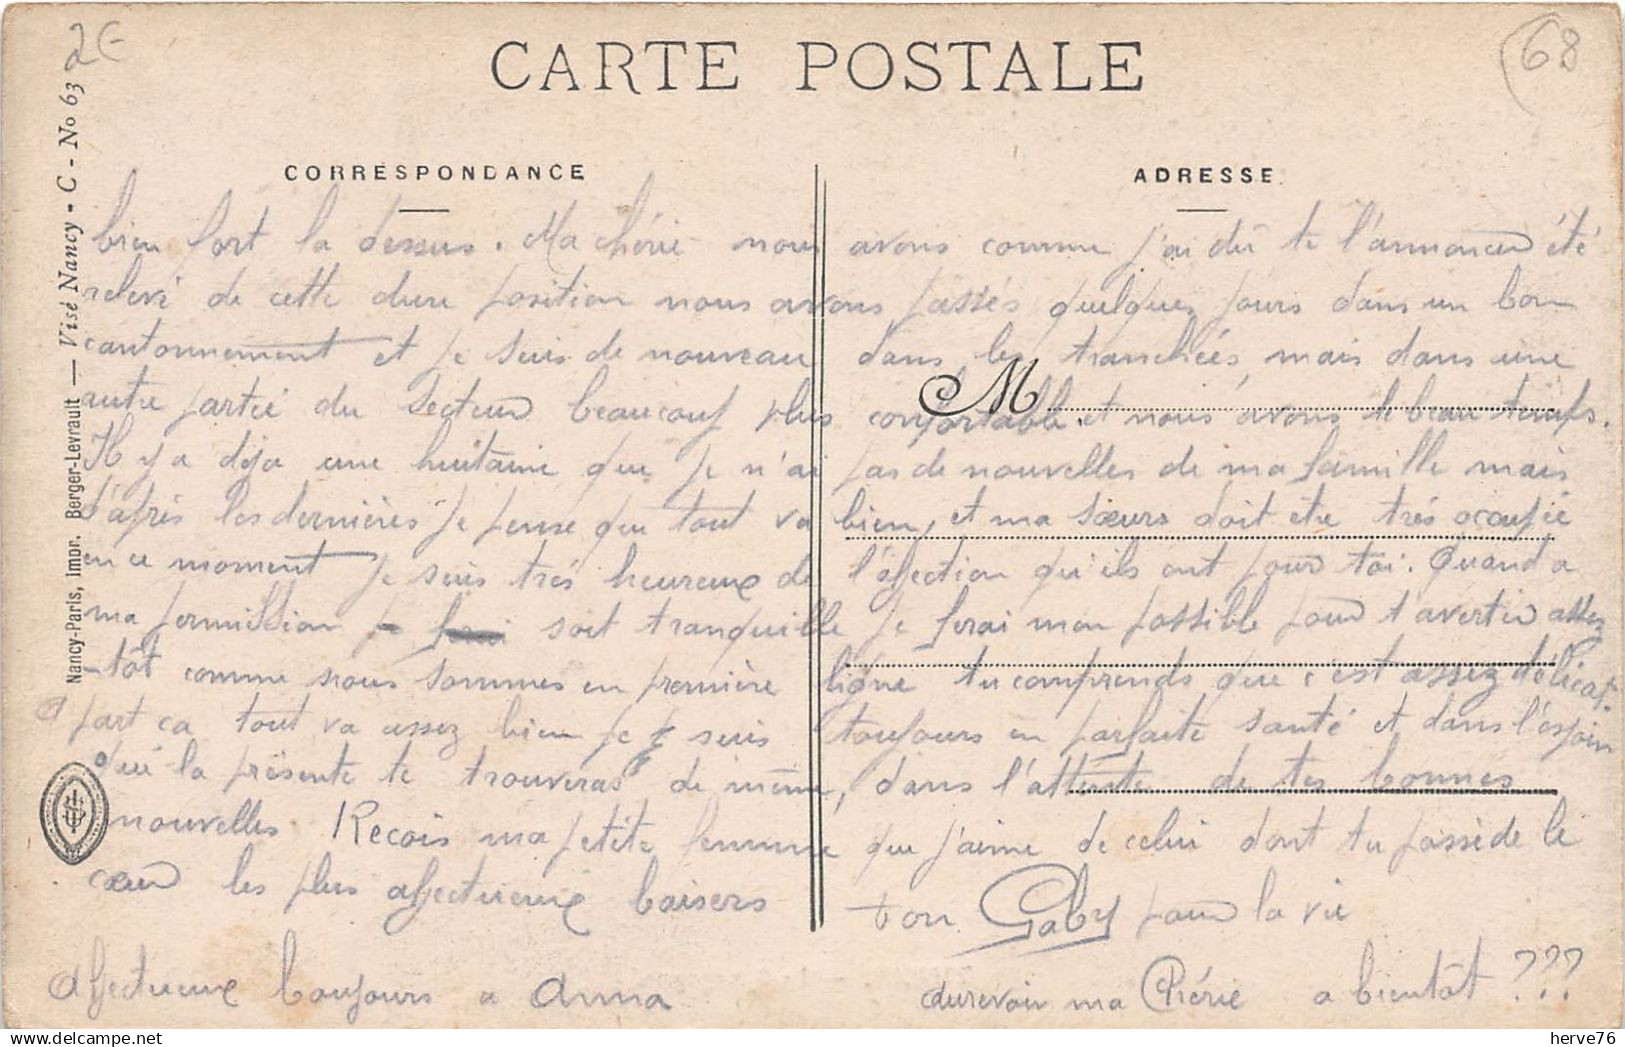 2€
68
CARTE POSTALE
CORRESPONDANCE
ADRESSE
Nancy-Paris, Impr. Berger-Levrault — Visé Nancy - C - No 63
M
bien fort la dessus. Ma chérie nous avons comme j'ai dû te l'annoncer été
relevé de cette dure position nous avons passés quelques jours dans un bon
cantonnement et je suis de nouveau dans les tranchées mais dans une
autre partie du secteur beaucoup plus confortable et nous avons le beau temps.
Il y a déja une huitaine que je n'ai pas de nouvelles de ma famille mais
d'après les dernières je pense que tout va bien, et ma soeurs doit etre très occupée
en ce moment je suis très heureux de l'affection qu'ils ont pour toi. Quand a
ma permission je soit tranquille je ferai mon possible pour t'avertir assez
-tôt comme nous sommes en première ligne tu comprends que c'est assez délicat.
a part ca tout va assez bien je suis toujours en parfaite santé et dans l'espoir
que la présente te trouveras de même, dans l'attente de tes bonnes
nouvelles Recois ma petite femme que j'aime de celui dont tu possède le
cœur les plus affectueux baisers
ton Gaby pour la vie
affectueux bonjours a Anna
aurevoir ma Chérie a bientôt ???
herve76